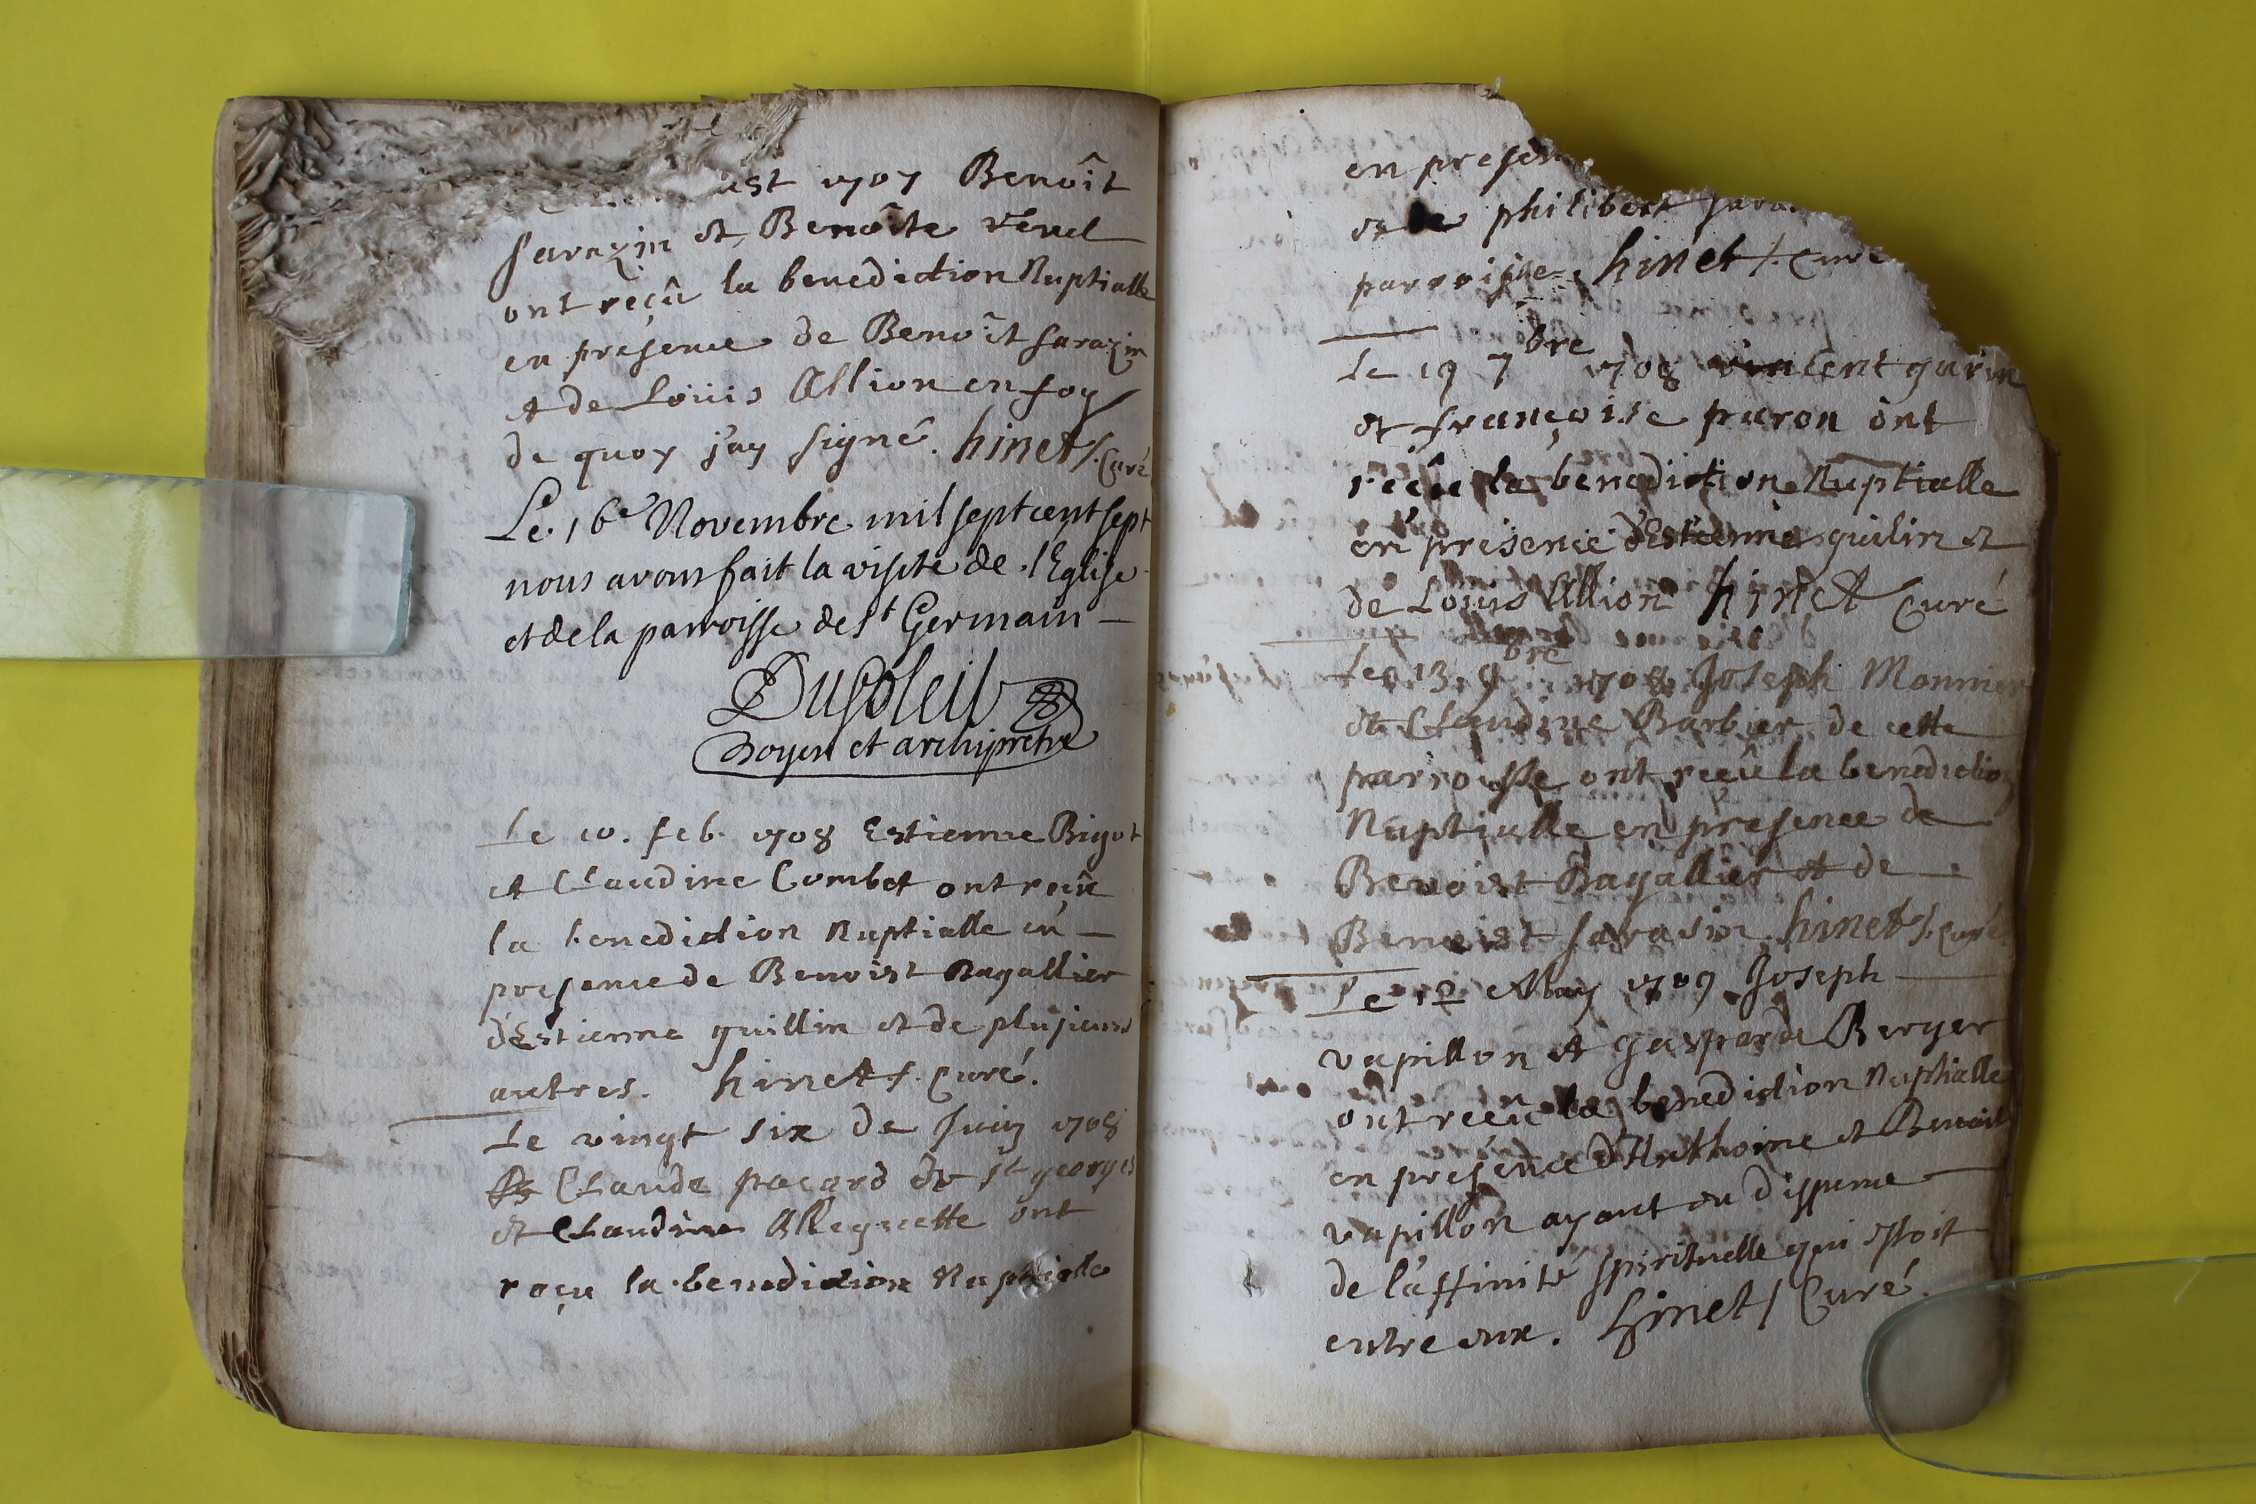 1707 Benoît
sarazin et Benoîte
ont reçû la benediction Nuptialle
en presence de Benoît sarazin
et de Loüis Allion en foy
de quoy j'ay signé. hinet p. Curé
Le 16e Novembre mil sept cent sept
nous avons fait la visite de l'Eglise
et de la parroisse de St Germain
DuSoleil
Doyen et archiprêtre
Le 10. feb. 1708 Estienne Bigot
et Claudine Combet ont reçû
la benediction Nuptialle en
presence de Benoist Bagallier
d'Estienne guillin et de plusieurs
autres. hinet p. Curé.
Le vingt six de Juin 1708
Claude pacard de St georges
et Claudine Alleguette ont
reçu la benediction Nuptialle
en presen
et de philibert
parroisse. hinet p. Curé
Le 19 7bre 1708 vincent garin
et françoise paron ont
reçu la benediction Nuptialle
en presence d'Estienne guilin et
de Louis Allion hinet Curé
Le 13 9bre 1708 Joseph Monnier
et Claudine Barbier de cette
parroisse ont reçû la benediction
Nuptialle en presence de
Benoist Bagallier et de
Benoist sarasin hinet p. Curé
Le 12 May 1709 Joseph
vapillon et gasparde Berger
ont reçu la benediction Nuptialle
en presence d'Anthoine et Benoist
vapillon ayant eu dispense
de l'affinité spirituelle qui estoit
entre eux. hinet p Curé.